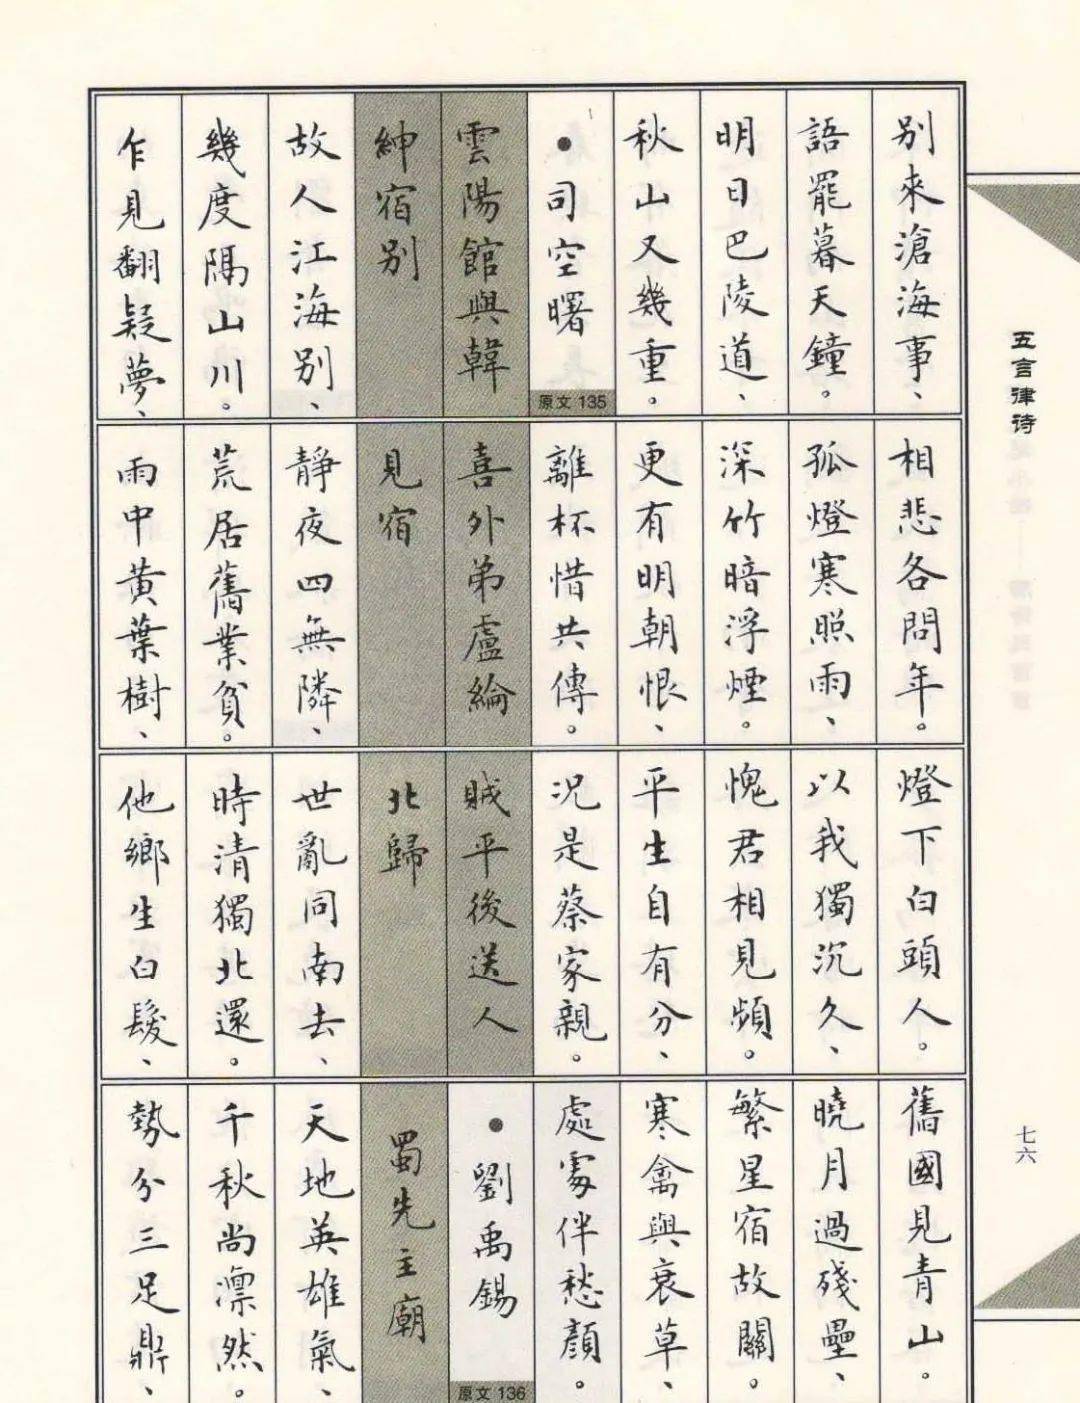 别來滄海事、
語罷暮天鐘。
明日巴陵道、
秋山又幾重。
•司空曙
原文 135
雲陽館與韓
紳宿别
故人江海别、
幾度隔山川。
乍見翻疑夢、
相悲各問年。
孤燈寒照雨、
深竹暗浮煙。
更有明朝恨、
離杯惜共傳。
喜外弟盧綸
見宿
靜夜四無隣、
荒居舊業貧。
雨中黄葉樹、
燈下白頭人。
以我獨沉久、
愧君相見頻。
平生自有分、
況是蔡家親。
賊平後送人
北歸
世亂同南去、
時清獨北還。
他鄉生白髮、
舊國見青山。
曉月過殘壘、
繁星宿故關。
寒禽與衰草、
處處伴愁顏。
•劉禹錫
原文 136
蜀先主廟
天地英雄氣、
千秋尚凛然。
勢分三足鼎、
五言律诗
七六